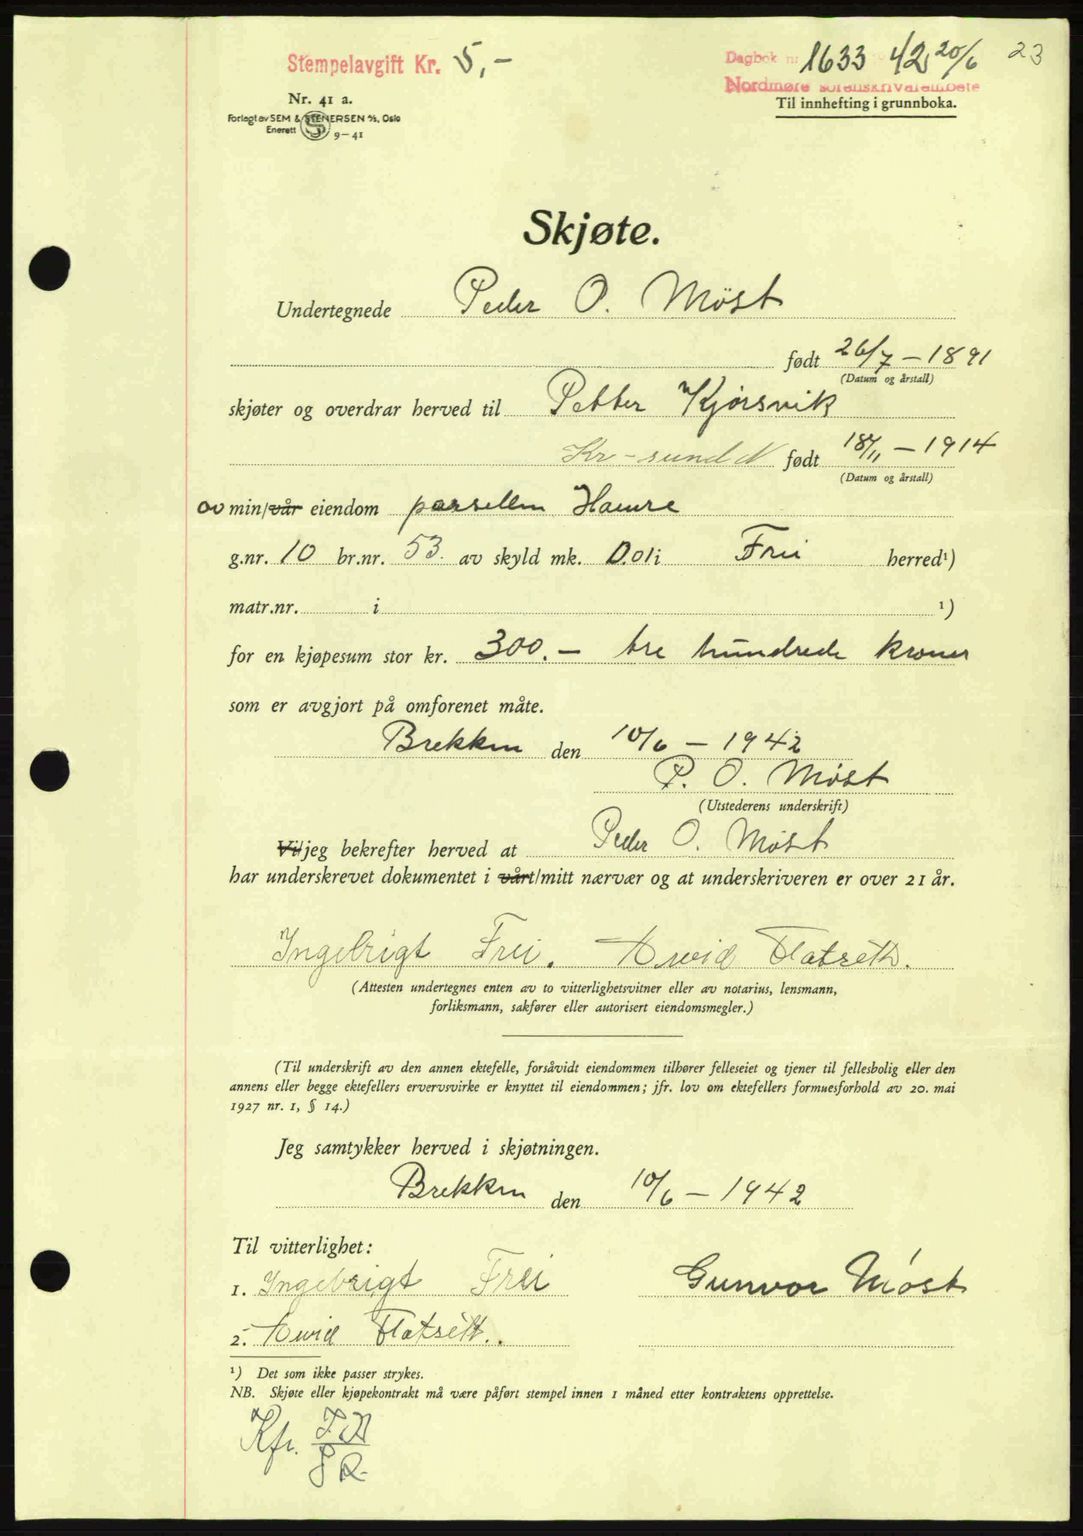 Stempelavgift Kr. 5,-
Dagbok nr. 1633 42 20/6 23
Nordmøre sorenskriverembete
Nr. 41 a.
Til innhefting i grunnboka.
Forlagt av SEM & STENERSEN A/S, Oslo
Enerett S 9-41
Skjøte.
Undertegnede Peder O. Møst
født 26/7 - 1891
(Datum og årstall)
skjøter og overdrar herved til Petter Kjørsvik
Kr-sund N født 18/11 - 1914
(Datum og årstall)
av min/vår eiendom parsellen Hamre
g.nr. 10 br.nr. 53 av skyld mk. 0.01 i Frei herred¹)
matr.nr. i ¹)
for en kjøpesum stor kr. 300.- tre hundrede kroner
som er avgjort på omforenet måte.
Brekken den 10/6 - 1942
P. O. Møst
(Utstederens underskrift)
Vi/jeg bekrefter herved at Peder O. Møst
har underskrevet dokumentet i vårt/mitt nærvær og at underskriveren er over 21 år.
Ingebrigt Frei. Arvid Flatseth.
(Attesten undertegnes enten av to vitterlighetsvitner eller av notarius, lensmann,
forliksmann, sakfører eller autorisert eiendomsmegler.)
(Til underskrift av den annen ektefelle, forsåvidt eiendommen tilhører felleseiet og tjener til fellesbolig eller den
annens eller begge ektefellers ervervsvirke er knyttet til eiendommen; jfr. lov om ektefellers formuesforhold av 20. mai
1927 nr. 1, § 14.)
Jeg samtykker herved i skjøtningen.
Brekken den 10/6 - 1942
Til vitterlighet:
1. Ingebrigt Frei Gunvor Møst
2. Arvid Flatseth.
¹) Det som ikke passer strykes.
NB. Skjøte eller kjøpekontrakt må være påført stempel innen 1 måned etter kontraktens opprettelse.
Kfr.